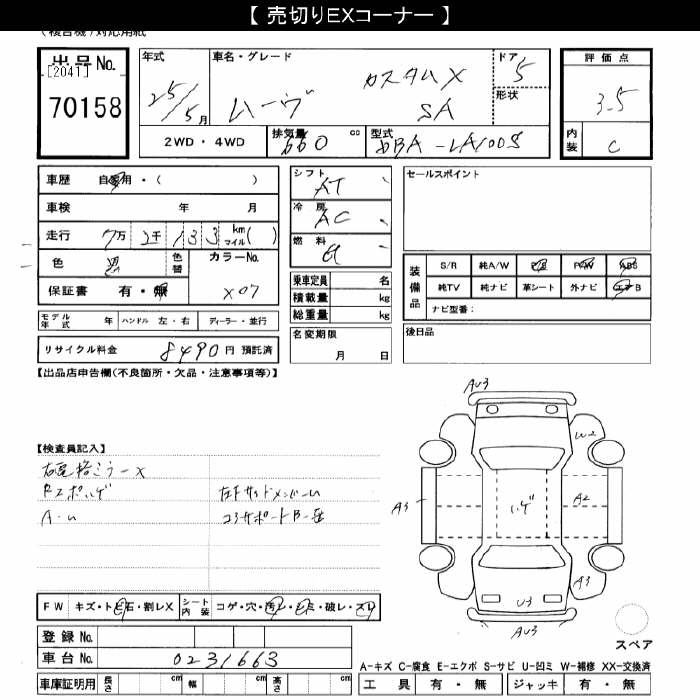 【 売切りEXコーナー 】
(複合機)対応用紙
出品No.
[2041]
70158
年式 25/5月
車名・グレード ムーヴ カスタムX SA
ドア 5
形状
評価点 3.5
内装 C
2WD・4WD
排気量 660 cc
型式 DBA-LA100S
車歴 自家用・( )
車検 年 月
走行 7万2千133 km マイル( )
色 黒 色替 カラーNo. X07
保証書 有・無
モデル年式 年 ハンドル 左・右 ディーラー・並行
リサイクル料金 8490円 預託済
シフト AT
冷房 AC
燃料
乗車定員 名
積載量 kg
総重量 kg
名変期限
月 日
セールスポイント
装備品
S/R 純A/W P/S P/W ABS
純TV 純ナビ 革シート 外ナビ エアB
ナビ型番:
後日品
【出品店申告欄(不良箇所・欠品・注意事項等)】
【検査員記入】
右電格ミラーX
A・U
コアサポート
AU3
W2
A3
ハゲ
A2
A3
U3
AU3
スペア
FW キズ・トビ石・割レX シート内装 コゲ・穴・汚レ・シミ・破レ・スリ
登録No.
車台No. 0231663
車庫証明用 長さ cm 幅 cm 高さ cm
A-キズ C-腐食 E-エクボ S-サビ U-凹ミ W-補修 XX-交換済
工具 有・無 ジャッキ 有・無